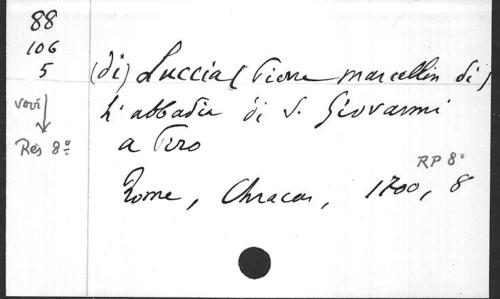 88
106
5
(di) Luccia (Pierre marcellin di)
voir
L'abbadia di S. Giovanni
Rés 8º
a Piro
RP 8º
Rome, Chracas, 1700, 8